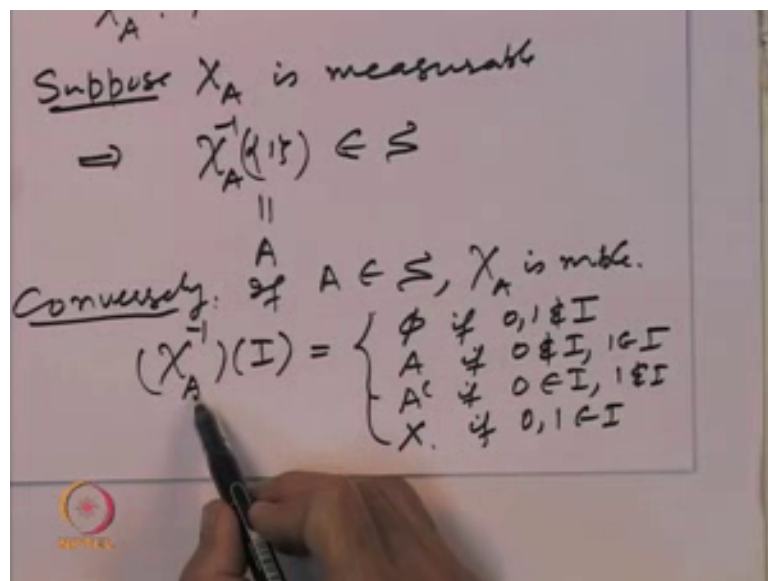 χ_A
Suppose χ_A is measurable
⟹ χ_A^{-1}({1}) ∈ S
||
A
Conversely. If A ∈ S, χ_A is mble.
(χ_A^{-1})(I) = { ϕ if 0,1 ∉ I
A if 0 ∉ I, 1 ∈ I
A^c if 0 ∈ I, 1 ∉ I
X. if 0,1 ∈ I
NPTEL